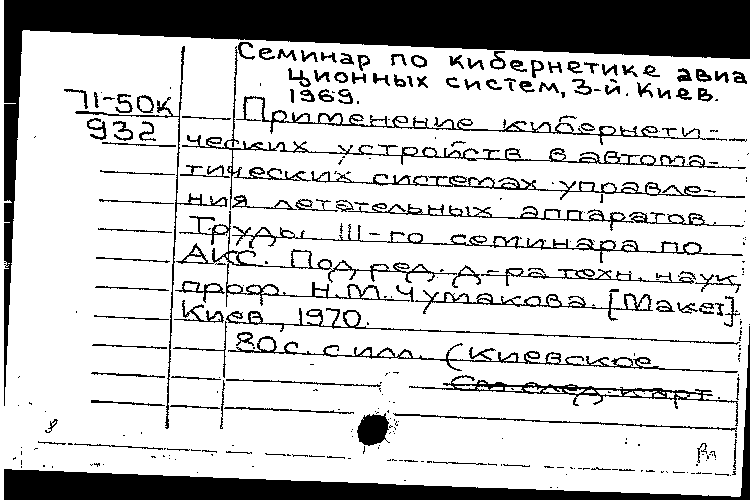 Семинар по кибернетике авиа
ционных систем, 3-й. Киев.
1969.
71-50к
932
Применение кибернети-
ческих устройств в автома-
тических системах управле-
ния летательных аппаратов.
Труды III-го семинара по
АКС. Под ред. д-ра техн. наук,
проф. Н.М. Чумакова. [Макет].
Киев, 1970.
80 с. с илл. (Киевское
См след. карт.